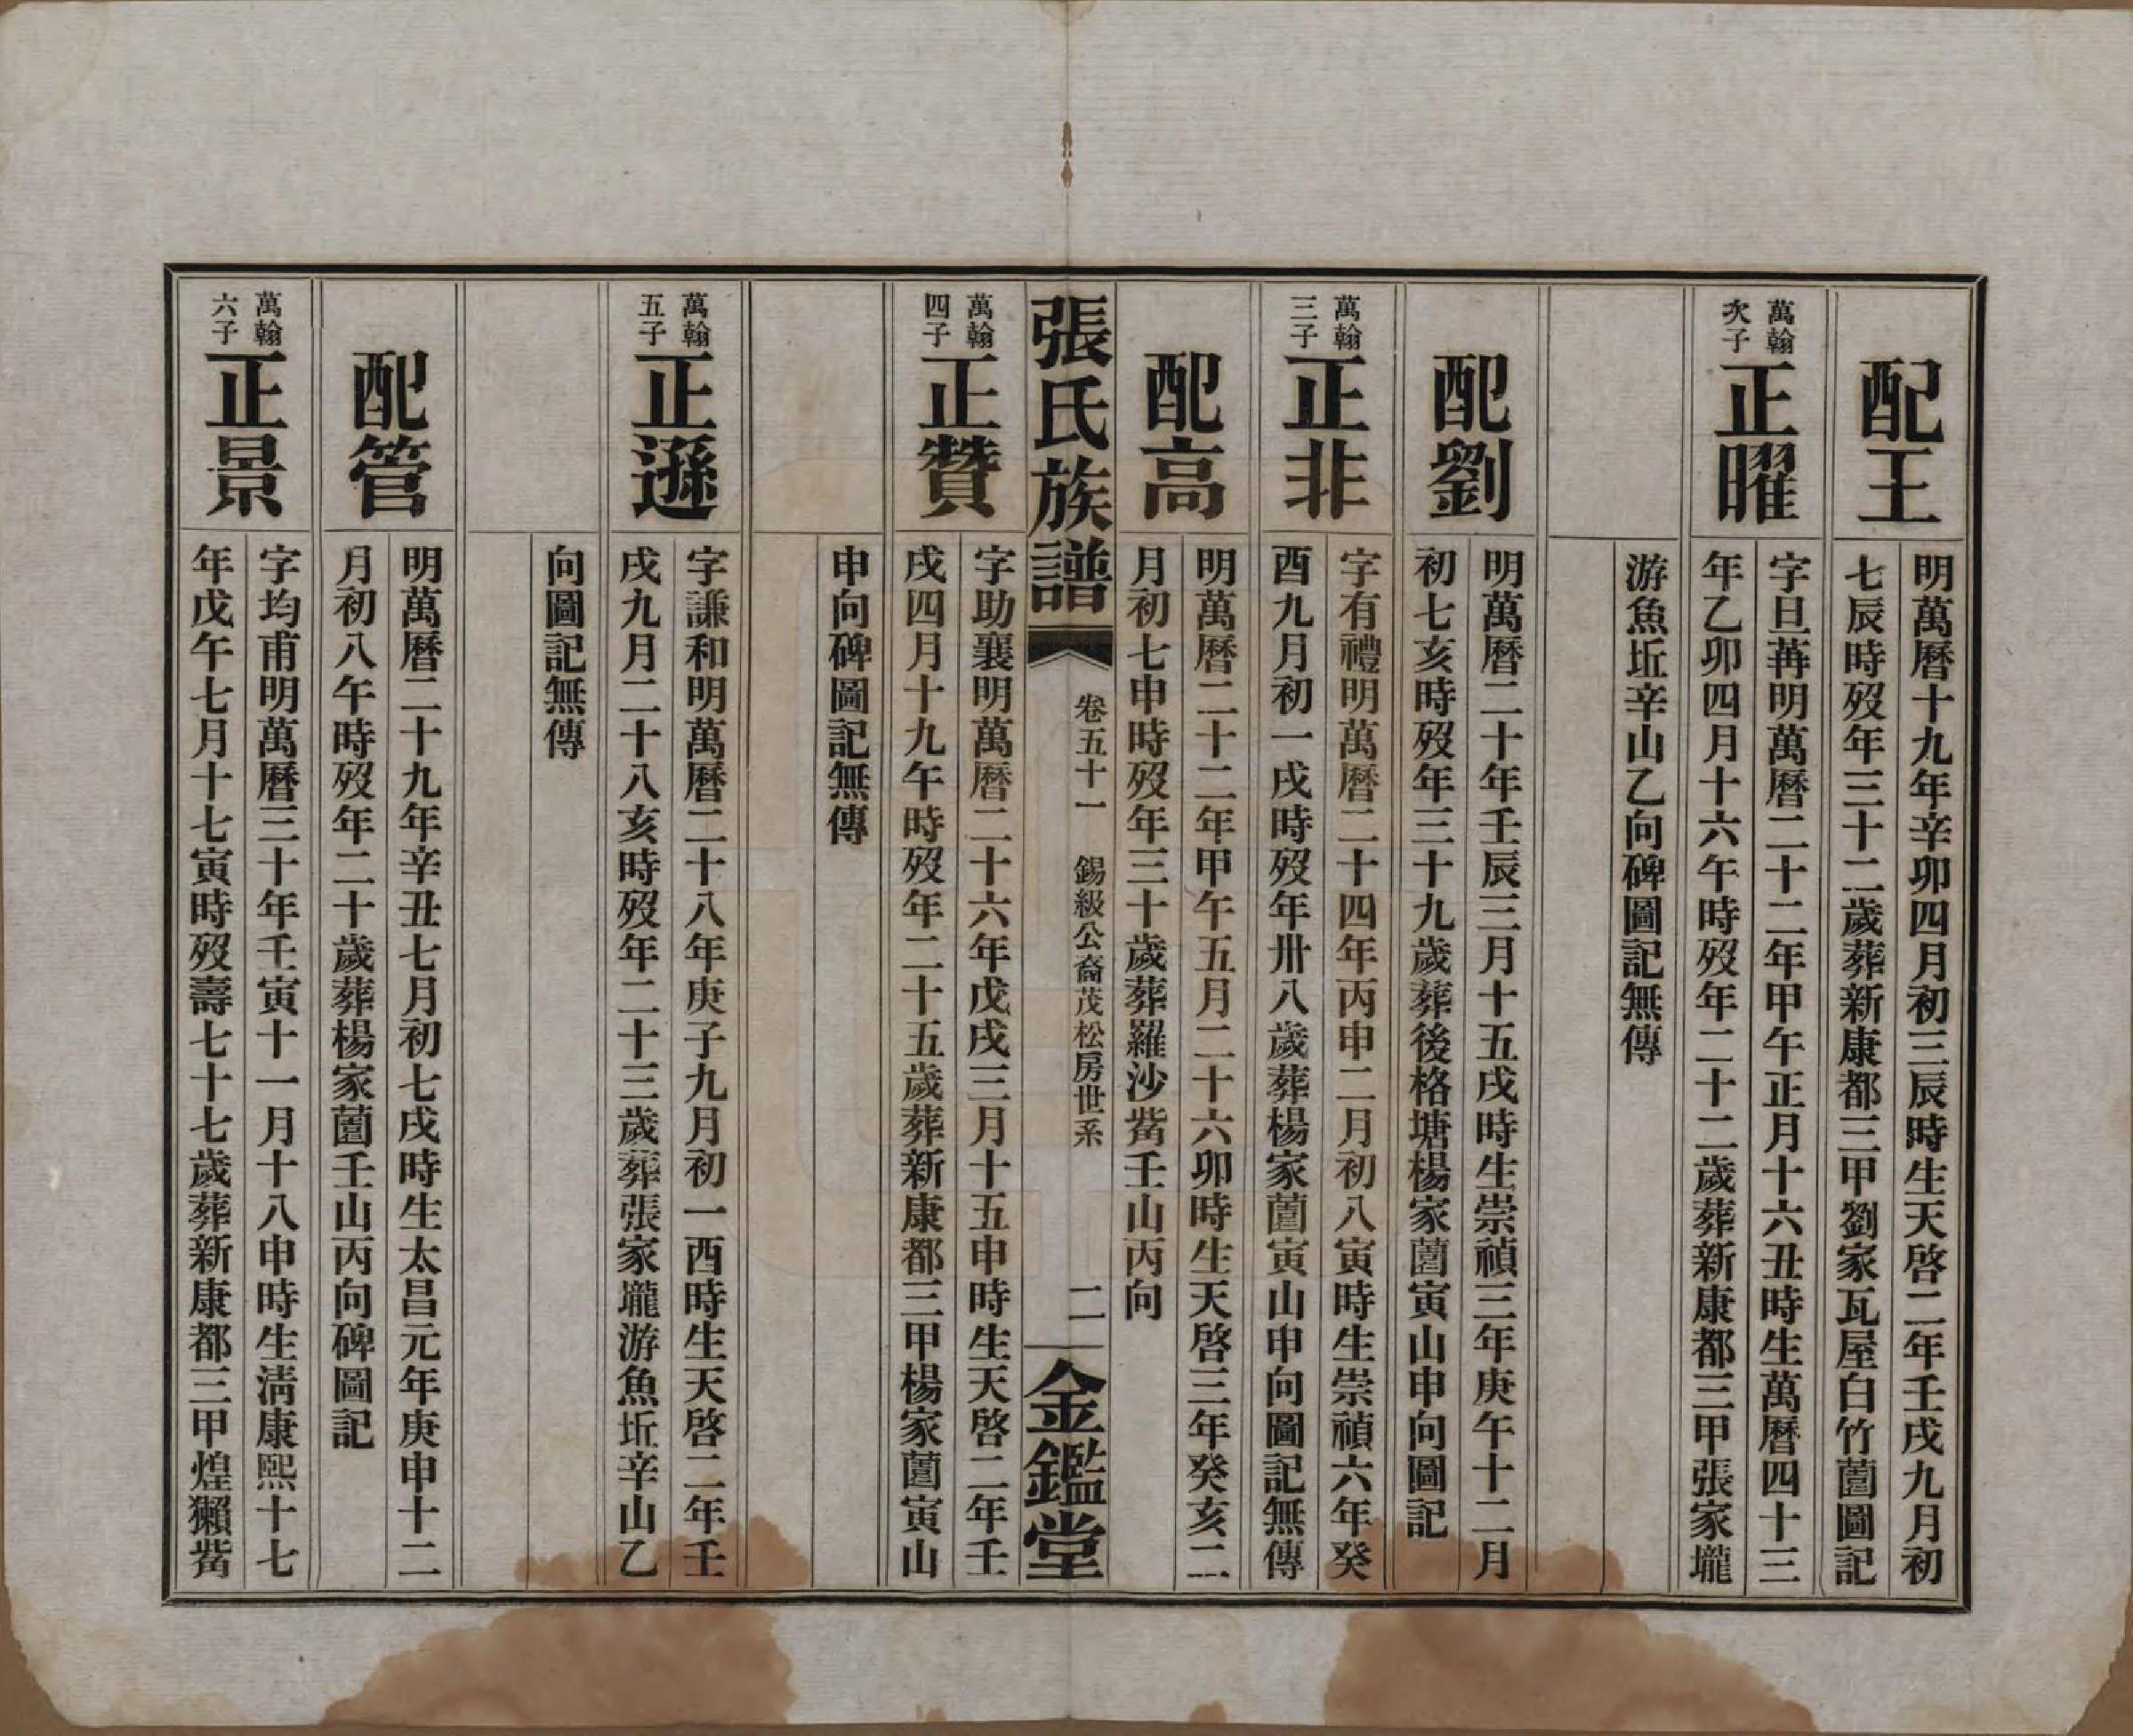 配王
明萬曆十九年辛卯四月初三辰時生天啓二年壬戌九月初
七辰時歿年三十二歲葬新康都三甲劉家瓦屋白竹薗圖記
萬翰
次子
正曜
字旦苒明萬曆二十二年甲午正月十六丑時生萬曆四十三
年乙卯四月十六午時歿年二十二歲葬新康都三甲張家壠
游魚坵辛山乙向碑圖記無傳
配劉
明萬曆二十年壬辰三月十五戌時生崇禎三年庚午十二月
初七亥時歿年三十九歲葬後格塘楊家薗寅山申向圖記
萬翰
三子
正非
字有禮明萬曆二十四年丙申二月初八寅時生崇禎六年癸
酉九月初一戌時歿年卅八歲葬楊家薗寅山申向圖記無傳
配高
明萬曆二十二年甲午五月二十六卯時生天啓三年癸亥二
月初七申時歿年三十歲葬羅沙觜壬山丙向
張氏族譜
卷五十一 錫級公裔茂松房世系
二
金鑑堂
萬翰
四子
正贊
字助襄明萬曆二十六年戊戌三月十五申時生天啓二年壬
戌四月十九午時歿年二十五歲葬新康都三甲楊家薗寅山
申向碑圖記無傳
萬翰
五子
正遜
字謙和明萬曆二十八年庚子九月初一酉時生天啓二年壬
戌九月二十八亥時歿年二十三歲葬張家壠游魚坵辛山乙
向圖記無傳
配管
明萬曆二十九年辛丑七月初七戌時生太昌元年庚申十二
月初八午時歿年二十歲葬楊家薗壬山丙向碑圖記
萬翰
六子
正景
字均甫明萬曆三十年壬寅十一月十八申時生淸康熙十七
年戊午七月十七寅時歿壽七十七歲葬新康都三甲煌獺觜